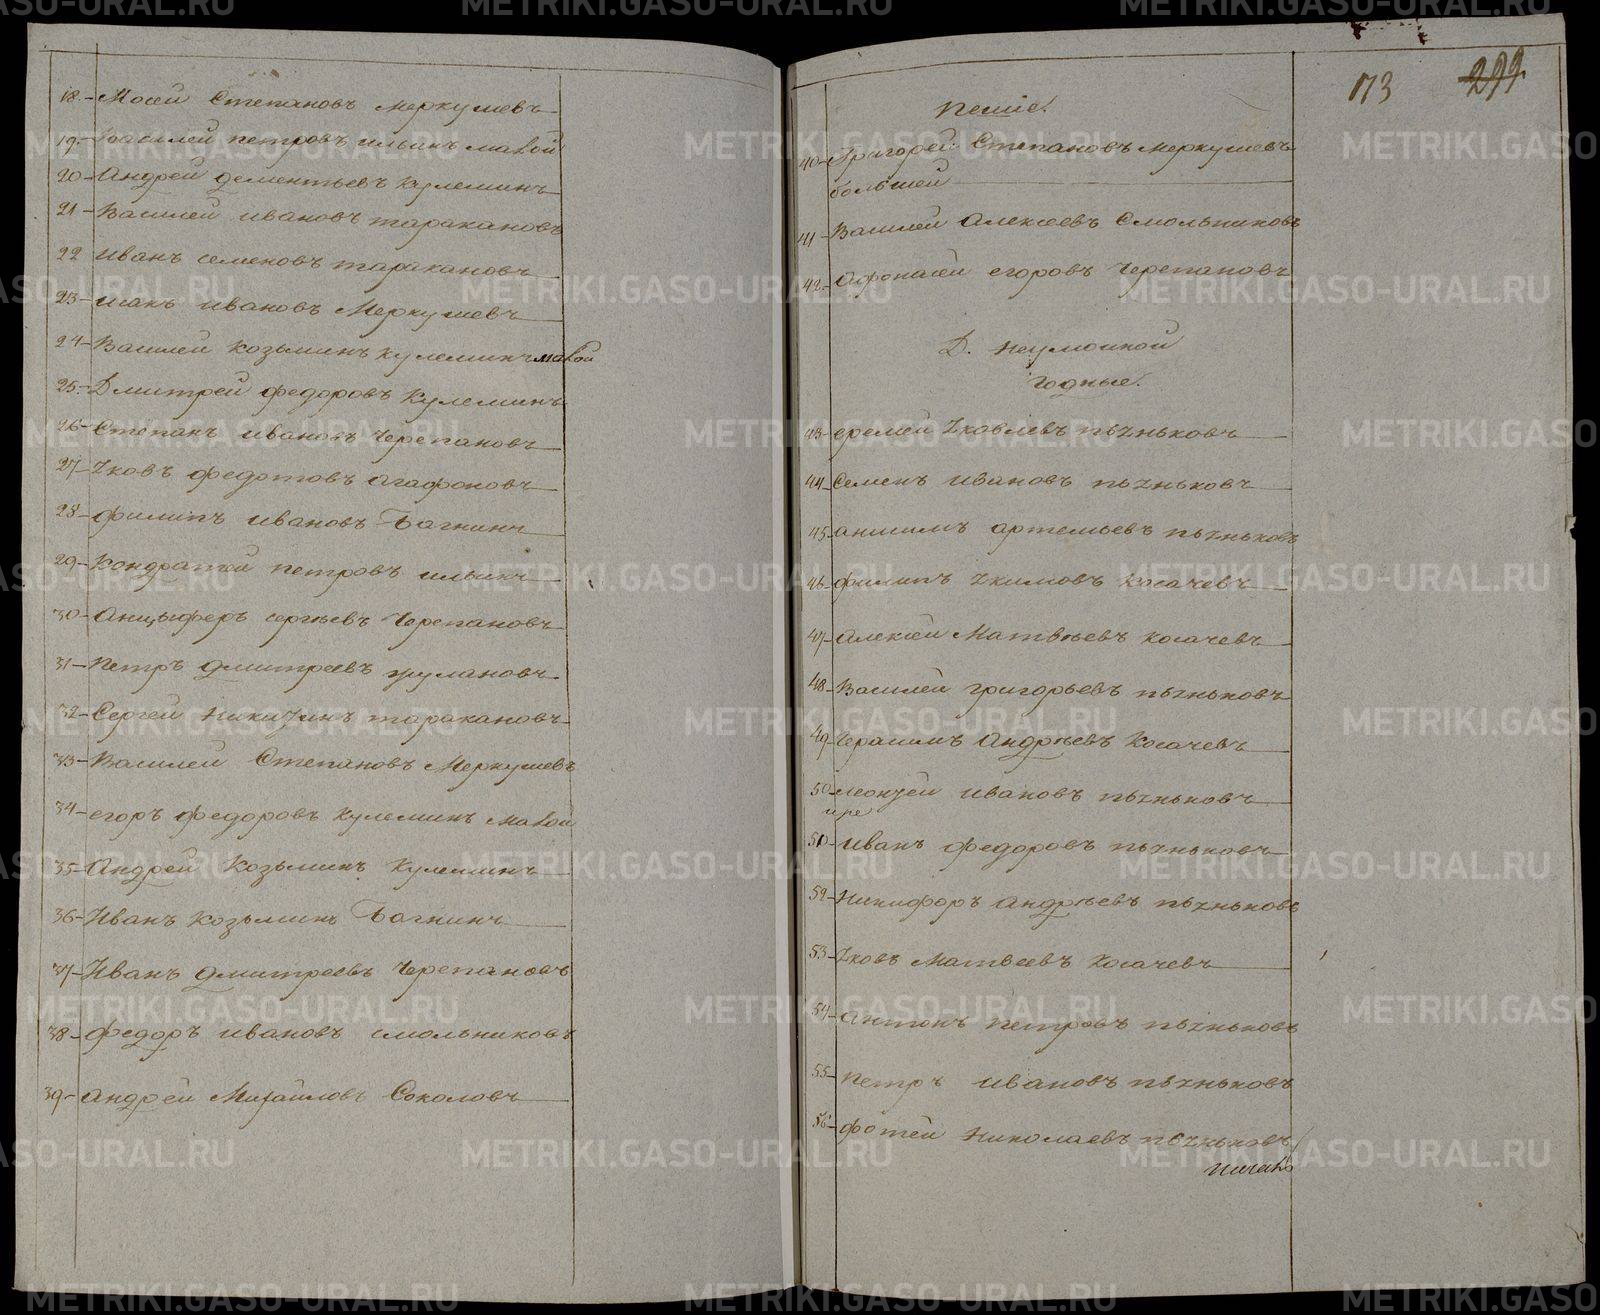 18. Мосей Степановъ Меркушевъ
19. Василей петровъ ильинъ малой
20 Андрей дементьевъ Кулеминъ
21 Василей ивановъ таракановъ
22 Иванъ семеновъ таракановъ
23 исакъ ивановъ Меркушевъ
24 Василей козьминъ кулеминъ малой
25. Дмитрей федоровъ Кулеминъ
26 Степанъ ивановъ Черепановъ
27 Яковъ федотовъ агафоновъ
28 филипъ ивановъ Багнинъ
29 Кондратей петровъ ильинъ
30 Анцыферъ сергѣевъ Черепановъ
31 Петръ дмитреевъ
32 Сергей таракановъ
33 Василей Степановъ Меркушевъ
34 егоръ федоровъ кулеминъ малой
35 Андрей Козьминъ Кулеминъ
36 Иванъ козьминъ Багнинъ
37 Иванъ дмитреевъ Черепановъ
38 федоръ ивановъ смольниковъ
39 андрей Михайловъ Соколовъ
173 299
пешіе.
40 Григорей Степановъ меркушевъ
большей
41 Василей Алексеевъ Смольниковъ
42. Афонасей егоровъ Черепановъ
Д. Неумоиной
годные.
43 еремей Яковлевъ пьянковъ
44 Семенъ ивановъ пьяньковъ
45 анисимъ артемьевъ пьяньковъ
46 филипъ Якимовъ косачевъ
47 Алексей Матвѣевъ косачевъ
48 Василей григорьевъ пьяньковъ
49 Герасимъ Андрѣевъ Косачевъ
50 леонтей ивановъ пьяньковъ
51 иванъ федоровъ пьяньковъ
52 Никифоръ андрѣевъ пьяньковъ
53 Яковъ Матвеевъ Косачевъ
54 антонъ петровъ пьяньковъ
55 петръ ивановъ пьяньковъ
56 фотей николаевъ пьяньковъ
METRIKI.GASO-URAL.RU